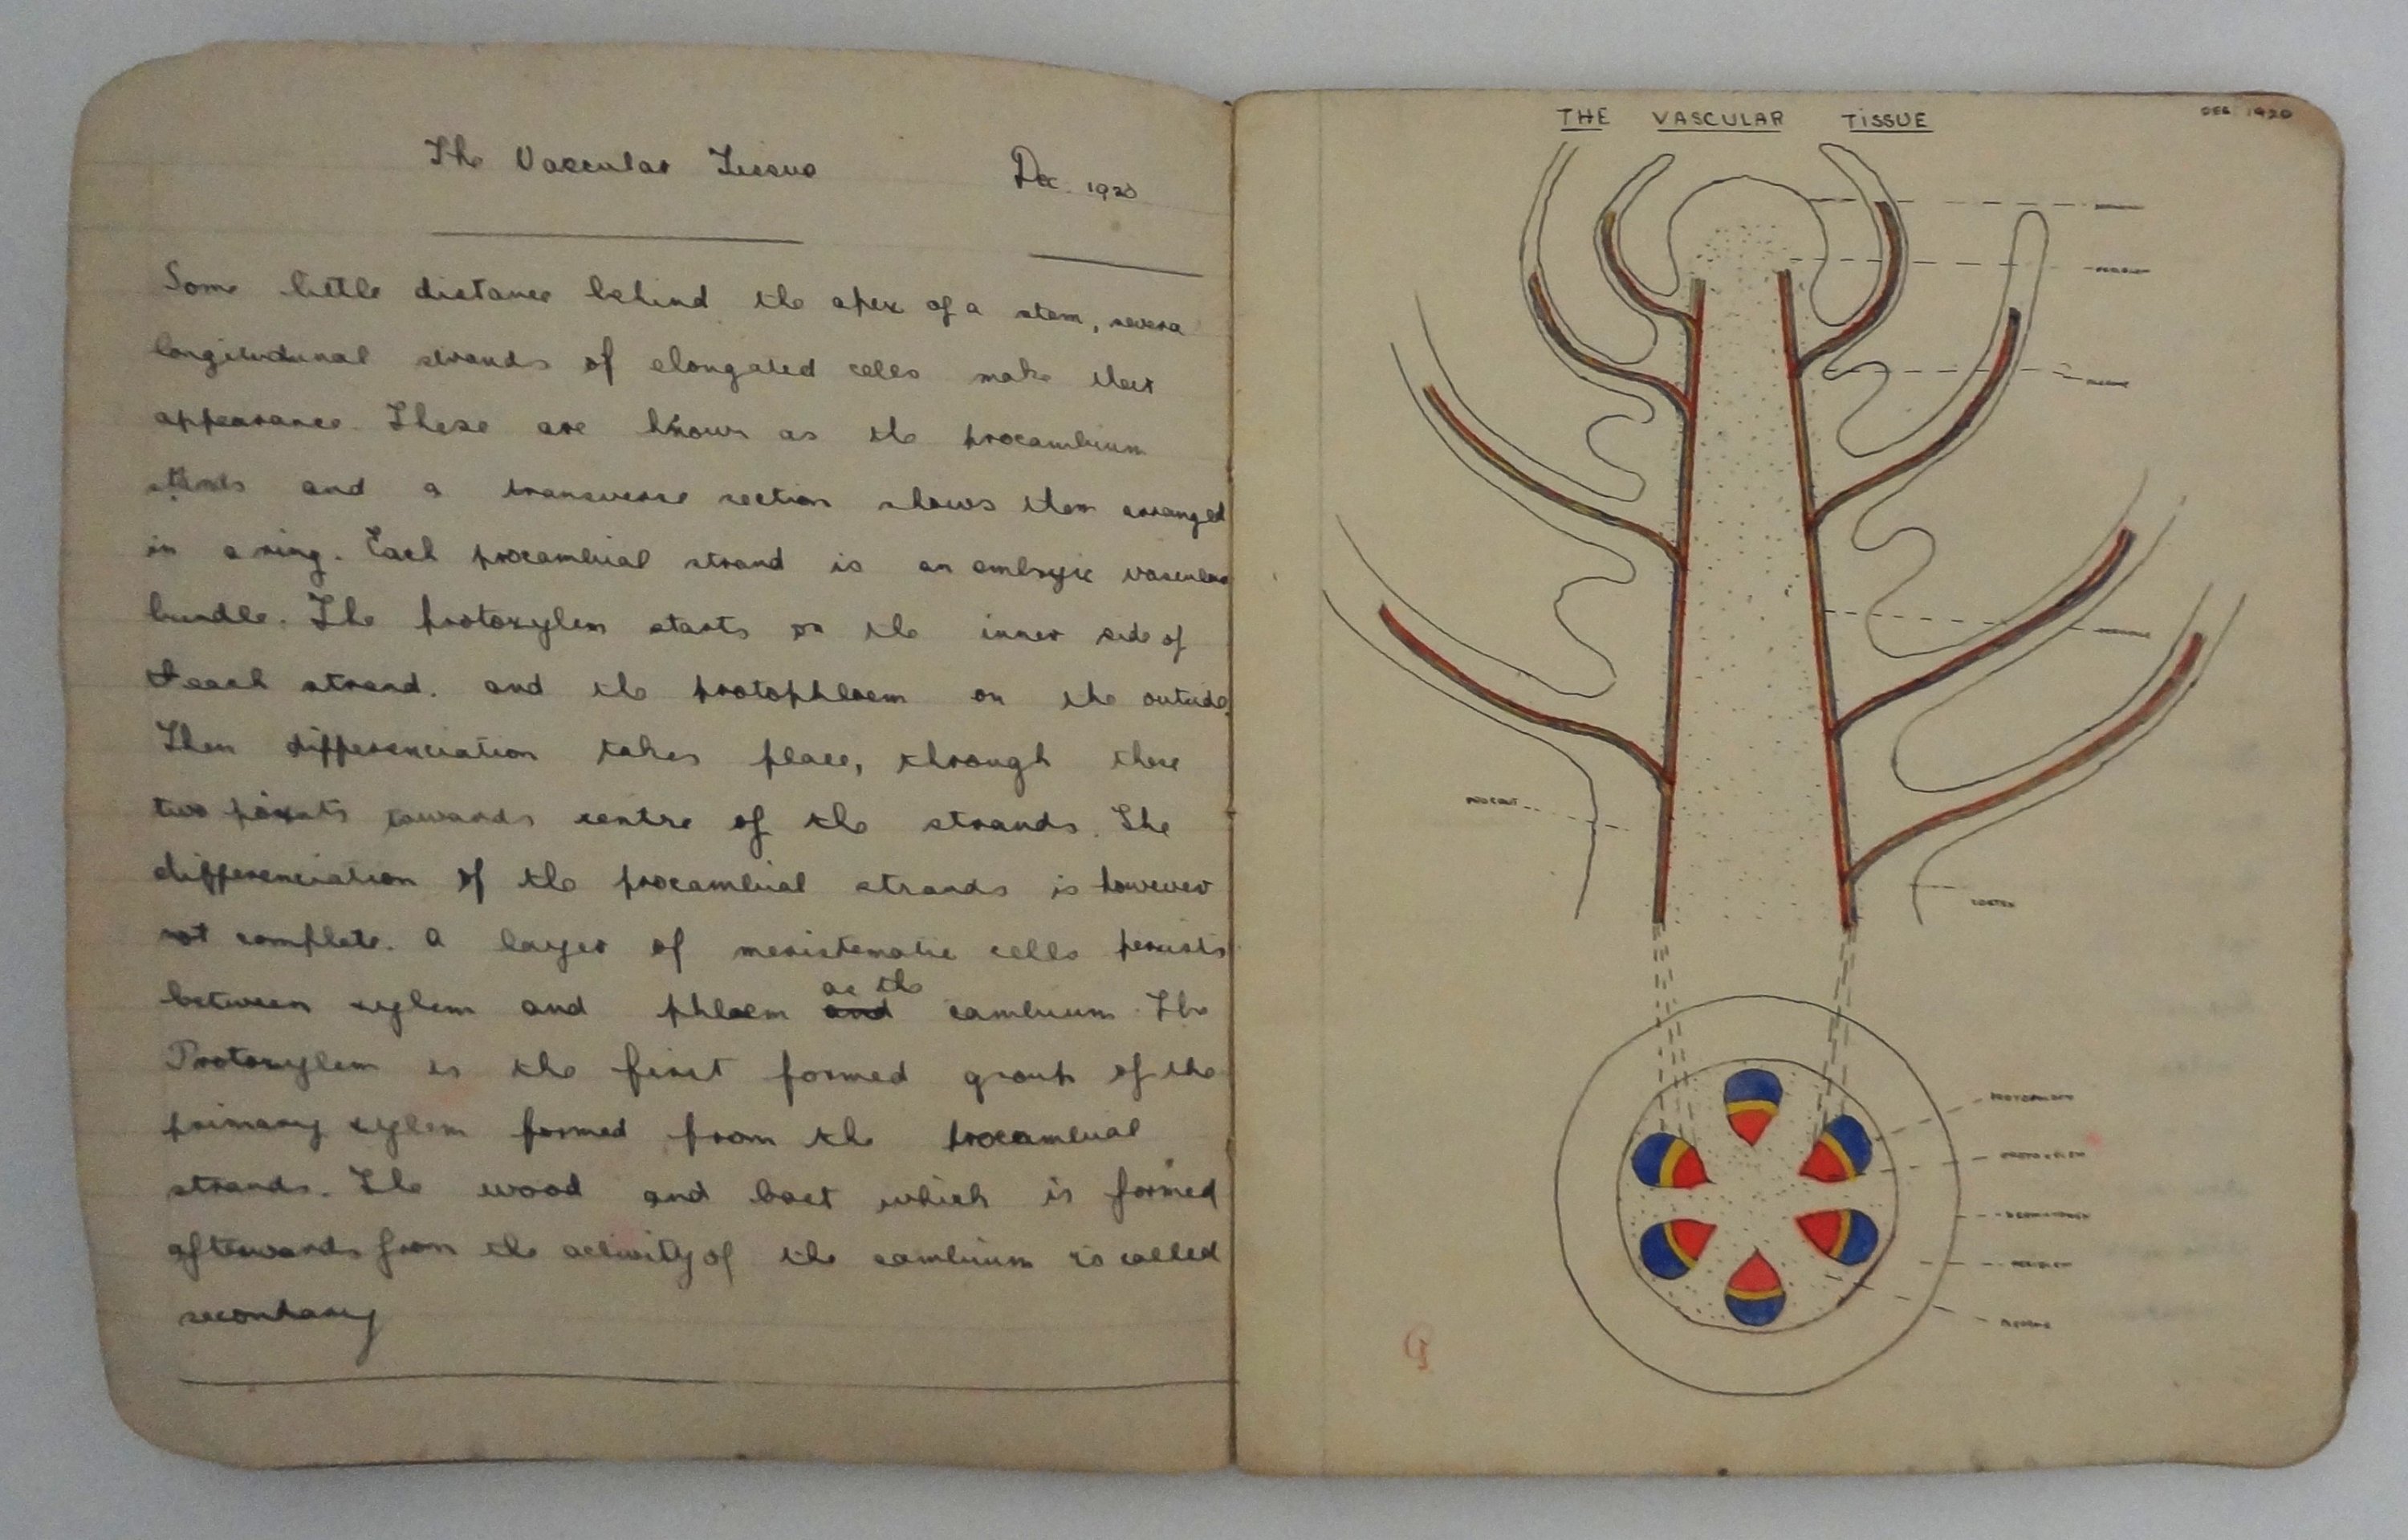 The Vascular Tissue Dec. 1920
Some little distance behind the apex of a stem, severa
longitudunal strands of elongated cells make their
appearance. These are known as the procambium
and a transverse section shows them arranged
in a ring. Each procambial strand is an embryic vascular
bundle. The protoxylem starts on the inner side of
each strand. and the protophloem on the outside.
Then differenciation takes place, through these
two points towards centre of the strands. The
differenciation of the procambial strands is however
not complete. A layer of meristematic cells persists
between xylem and phloem and as the cambium. The
Protoxylem is the first formed group of the
primary xylem formed from the procambial
strands. The wood and bast which is formed
afterwards from the activity of the cambium is called
secondary
THE VASCULAR TISSUE
DEC. 1920
PERIBLEM
CORTEX
PROTOXYLEM
DERMATOGEN
PERIBLEM
PLEROME